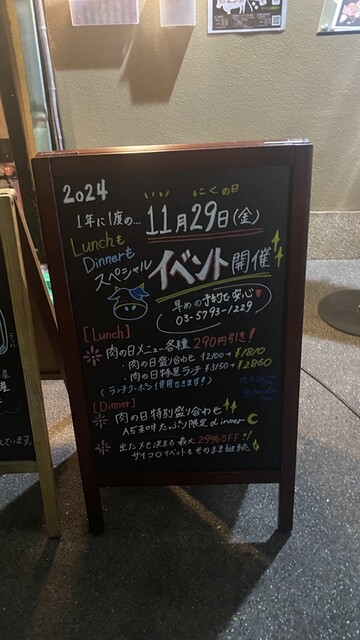 2024
いい にくの日
1年に1度の… 11月29日(金)
Lunchも
Dinnerも
スペシャル イベント開催
早めの予約で安心♥
03-5793-1229
[Lunch]
肉の日メニュー各種 290円引き!
・肉の日盛り合わせ ¥2100→¥1810
・肉の日特選ランチ ¥3150→¥2860
(ランチクーポン併用できます!)
[Dinner]
肉の日特別盛り合わせ
A5和牛たっぷり限定dinner
出たメモ次第で最大29%OFF?!
サイコロイベントもそのまま継続